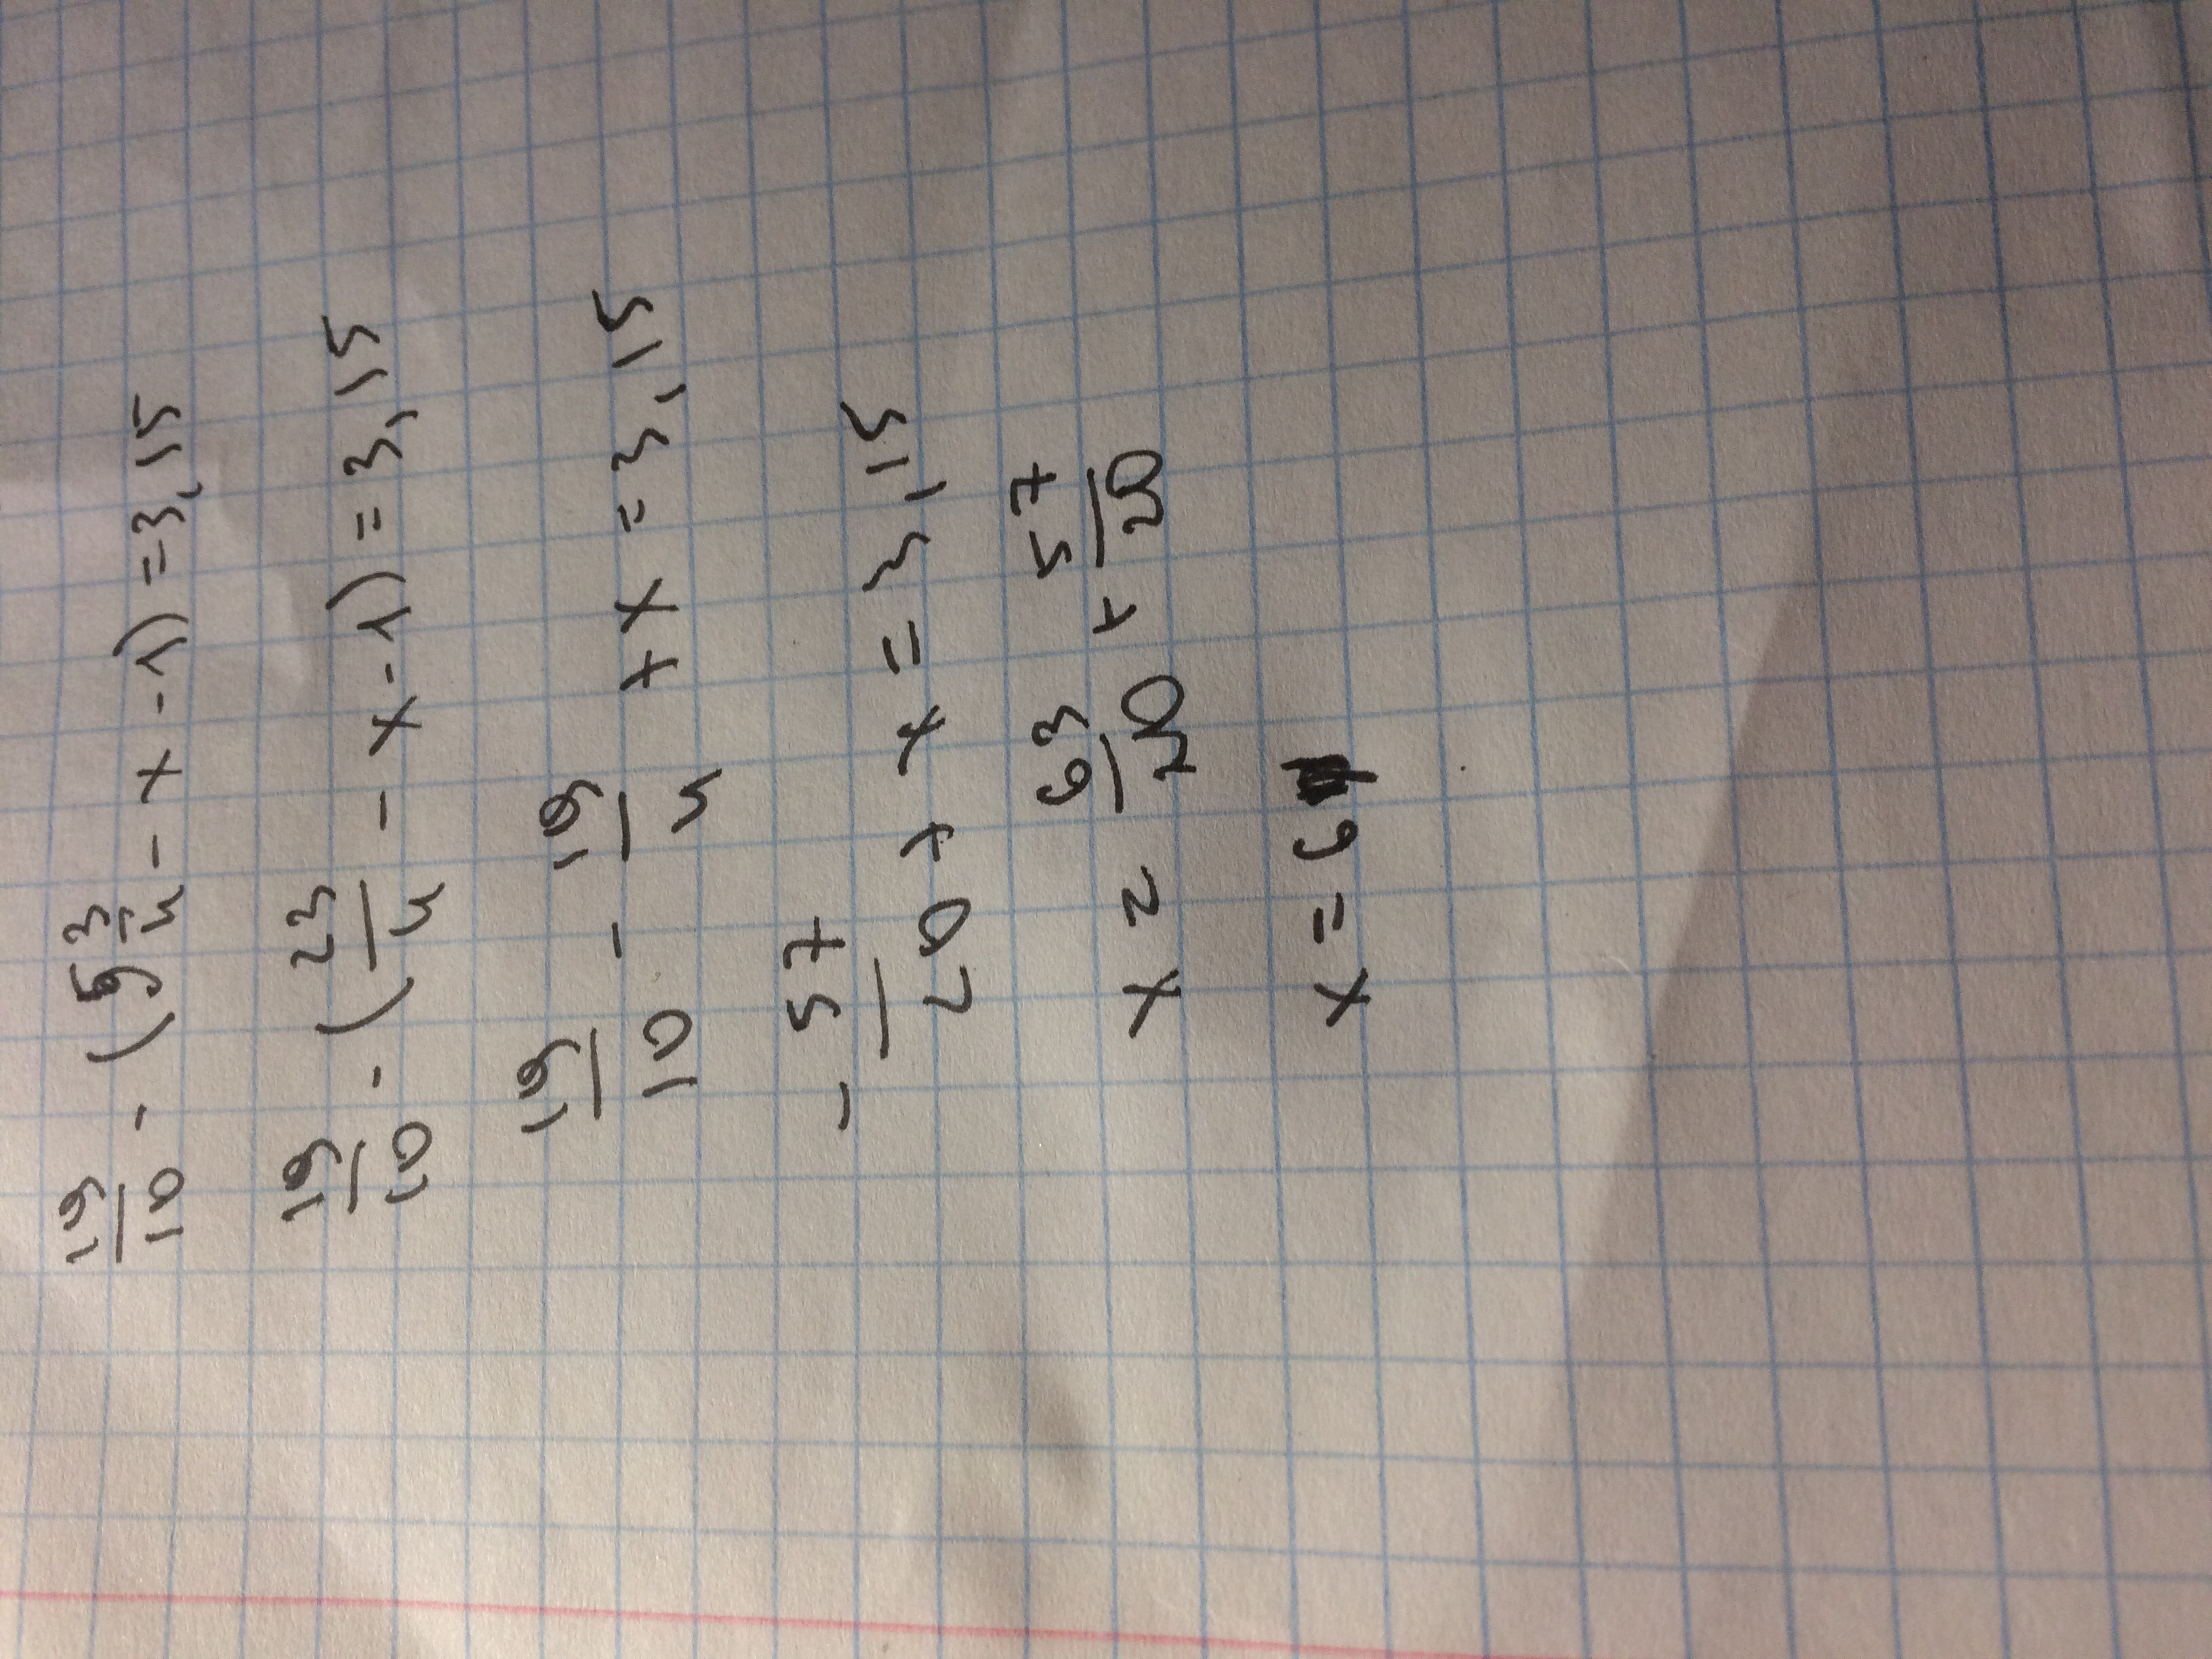 19/10 - (5 3/4 - x - 1) = 3,15
19/10 - (23/4 - x - 1) = 3,15
19/10 - 19/4 + x = 3,15
- 57/20 + x = 3,15
x = 63/20 + 57/20
x = 6